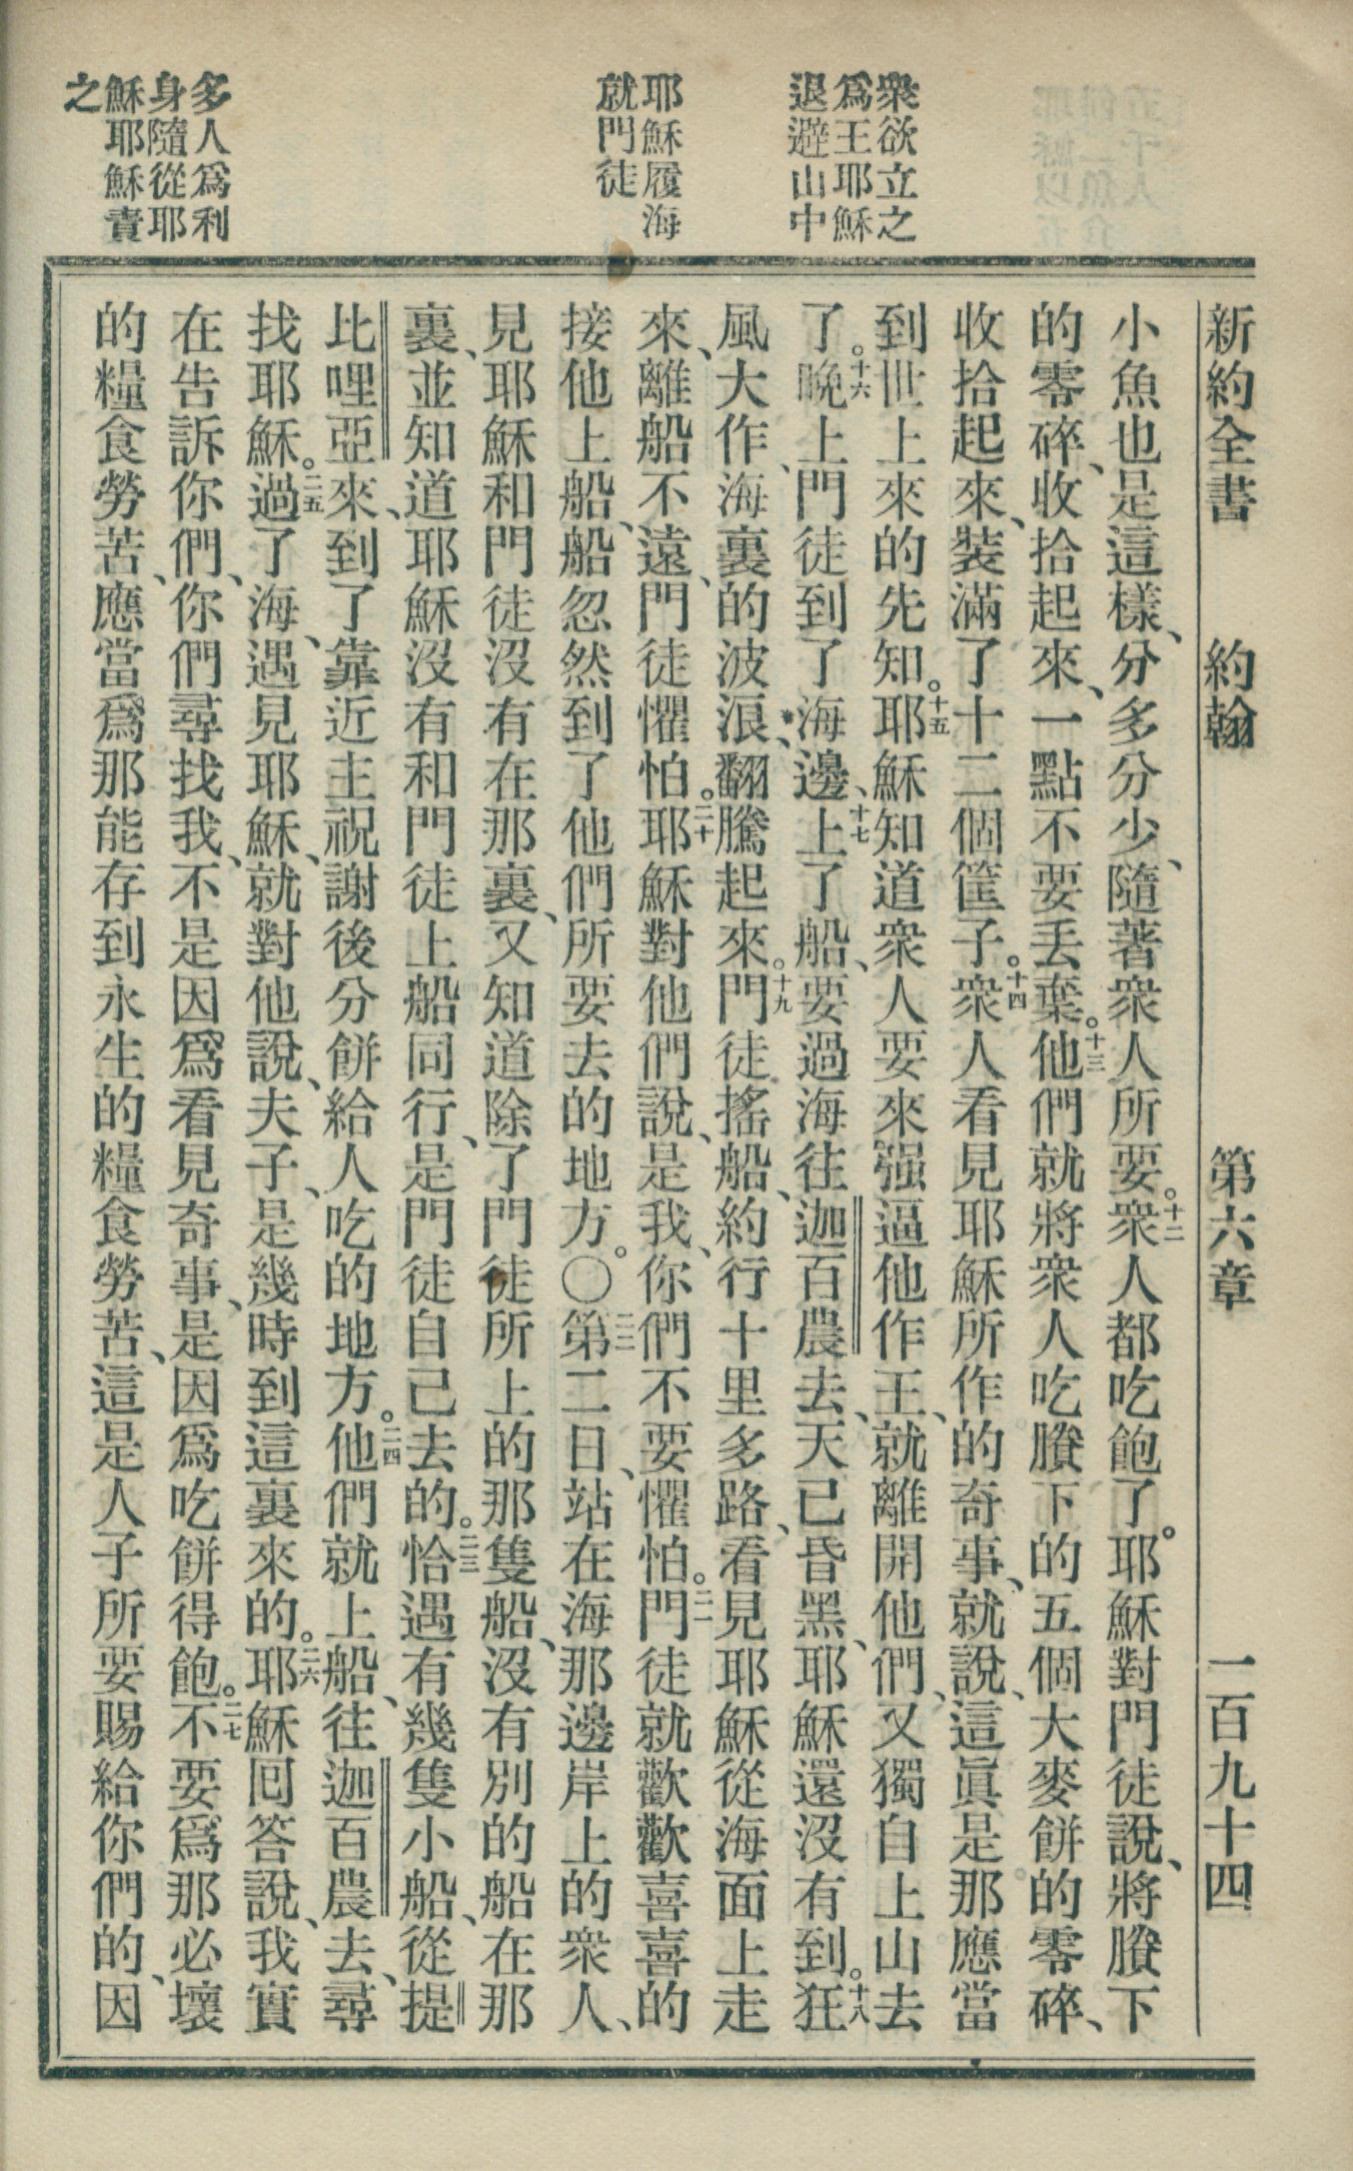 新約全書　約翰　第六章　一百九十四
衆欲立之
爲王耶穌
退避山中
耶穌履海
就門徒
多人爲利
身隨從耶
穌耶穌責
之
小魚也是這樣、分多分少、隨著衆人所要。十二衆人都吃飽了。耶穌對門徒說、將賸下
的零碎、收拾起來、一點不要丟棄。十三他們就將衆人吃賸下的五個大麥餅的零碎、
收拾起來、裝滿了十二個筐子。十四衆人看見耶穌所作的奇事、就說、這眞是那應當
到世上來的先知。十五耶穌知道衆人要來强逼他作王、就離開他們、又獨自上山去
了。十六晚上門徒到了海邊、十七上了船、要過海往迦百農去、天已昏黑、耶穌還沒有到。十八狂
風大作、海裏的波浪、翻騰起來。十九門徒搖船、約行十里多路、看見耶穌從海面上走
來、離船不遠、門徒懼怕。二十耶穌對他們說、是我、你們不要懼怕。二一門徒就歡歡喜喜的
接他上船、船忽然到了他們所要去的地方。〇二二第二日、站在海那邊岸上的衆人、
見耶穌和門徒沒有在那裏、又知道除了門徒所上的那隻船、沒有別的船在那
裏、並知道耶穌沒有和門徒上船同行、是門徒自己去的。二三恰遇有幾隻小船、從提
比哩亞來、到了靠近主祝謝後分餅給人吃的地方。二四他們就上船、往迦百農去、尋
找耶穌。二五過了海、遇見耶穌、就對他說、夫子、是幾時到這裏來的。二六耶穌囘答說、我實
在告訴你們、你們尋找我、不是因爲看見奇事、是因爲吃餅得飽。二七不要爲那必壞
的糧食勞苦、應當爲那能存到永生的糧食勞苦、這是人子所要賜給你們的、因